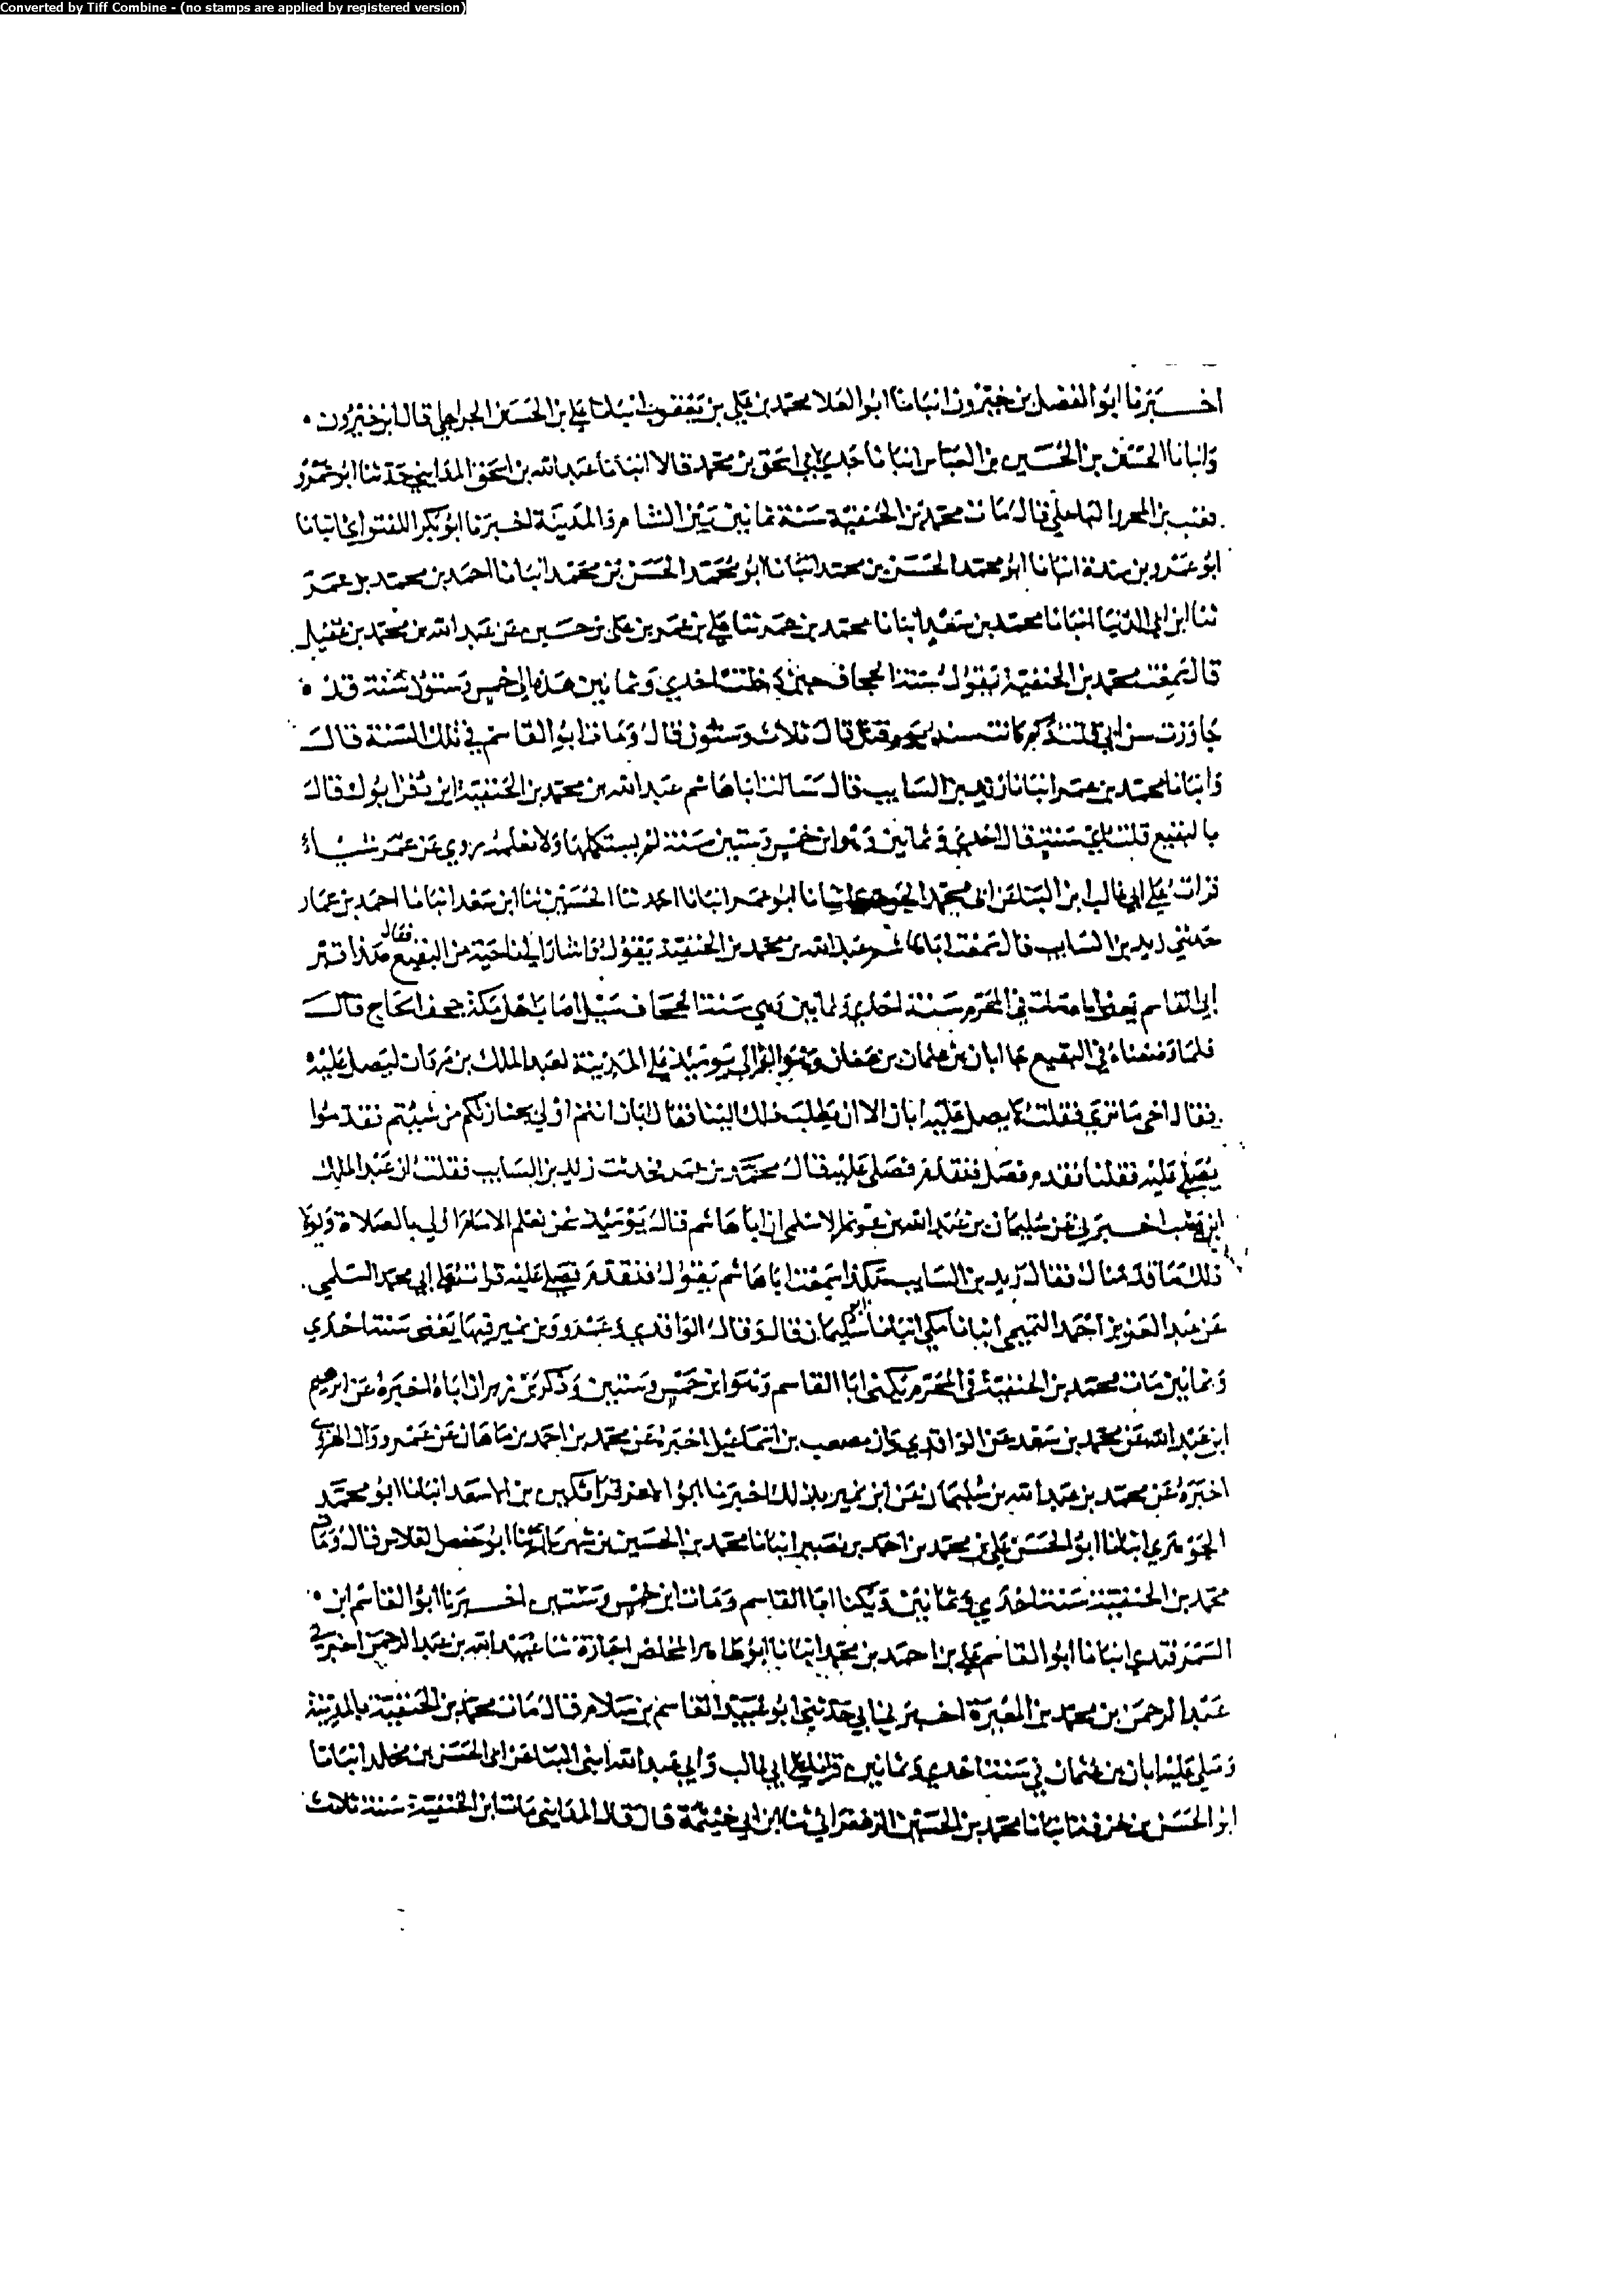 Converted by Tiff Combine - (no stamps are applied by registered version)
اخبرنا ابو الفضل بن خيرون انبانا ابو العلا محمد بن علي بن يعقوب انبانا علي بن الحسن الجراحي قال ابن خيرون
وانبانا الحسن بن الحسين بن العباس انبانا جدي لابي اسحق بن محمد قالا انبانا عبد الله بن اسحق المدايني حدثنا ابو عمرو
قعنب بن المحرر الباهلي قال مات محمد بن الحنفية سنة ثمانين بين الشام والمدينة اخبرنا ابو بكر اللفتواني انبانا
ابو عمرو بن مندة انبانا ابو محمد الحسن بن محمد انبانا ابو محمد الحسن بن محمد انبانا احمد بن محمد بن عمر
ثنا ابن ابي الدنيا انبانا محمد بن سعد انبانا محمد بن عمر ثنا علي بن عمر بن علي بن حسين عن عبد الله بن محمد بن عقيل
قال سمعت محمد بن الحنفية يقول سنة الجحاف حين دخلت احدي وثمانين هذه لي خمس وستون سنة قد
جاوزت سن ابي قلت وكم كانت سنه يوم قتل قال ثلاث وستون قال ومات ابو القاسم في تلك السنة قال
وانبانا محمد بن عمر انبانا زيد بن السايب قال سالت ابا هاشم عبد الله بن محمد بن الحنفية اين دفن ابوك فقال
بالبقيع قلت اي سنة قال احدي وثمانين وهو ابن خمس وستين سنة لم يستكملها ولا نعلمه روي عن عمر شياء
قرات علي ابي غالب ابن البنا عن ابي محمد الجوهري انبانا ابو عمر انبانا احمد ثنا الحسين ثنا ابن سعد انبانا احمد بن عمار
حدثني زيد بن السايب قال سمعت ابا هاشم عبد الله بن محمد بن الحنفية يقول واشار الي ناحية من البقيع فقال هذا قبر
ابي القاسم يعني اباه مات في المحرم سنة احدي وثمانين وهي سنة الجحاف سيل اصاب اهل مكة جحف الحاج قال
فلما وضعناه في البقيع جا ابان بن عثمان بن عفان وهو الوالي يوميذ علي المدينة لعبد الملك بن مروان ليصلي عليه
فقال اخي ما تري فقلت لا يصلي عليه ابان الا ان يطلب ذلك الينا فقال ابان انتم اولي بجنازتكم من شيتم فقدموا
يصلي عليه فقلنا تقدم فصل فتقدم فصلي عليه قال محمد بن عمر فحدثت زيد بن السايب فقلت ان عبد الملك
ابن وهب اخبرني عن سليمان بن عبد الله بن عويمر الاسلمي ان ابا هاشم قال يوميذ نحن نعلم الامام اولي بالصلاة ولولا
ذلك ما قدمناك فقال زيد بن السايب هكذا سمعت ابا هاشم يقول فتقدم فصلي عليه قرات علي ابي محمد السلمي
عن عبد العزيز بن احمد التميمي انبانا مكي انبانا ابو سليمان قال وقال الواقدي وعمرو وبن نمير فيها يعني سنة احدي
وثمانين مات محمد بن الحنفية في المحرم يكني ابا القاسم وهو ابن خمس وستين وذكر بن زبر ان اباه اخبره عن ابرهيم
ابن عبد الله عن محمد بن سعد عن الواقدي وان مصعب بن اسماعيل اخبره عن محمد بن احمد بن ماهان عن عمرو وان الهروي
اخبره عن محمد بن عبد الله بن سليمان عن ابن نمير بذلك اخبرنا ابو الاعز قراتكين بن الاسعد انبانا ابو محمد
الجوهري انبانا ابو الحسن علي بن محمد بن احمد بن نصير انبانا محمد بن الحسين بن شهريار ثنا ابو حفص الفلاس قال ومات
محمد بن الحنفية سنة احدي وثمانين ويكنا ابا القاسم ومات ابن خمس وستين اخبرنا ابو القاسم ابن
السمرقندي انبانا ابو القاسم علي بن احمد بن محمد انبانا ابو طاهر المخلص اجازة ثنا عبيد الله بن عبد الرحمن اخبرني
عبد الرحمن بن محمد بن المغيرة اخبرني ابي حدثني ابو عبيد القاسم بن سلام قال مات محمد بن الحنفية بالمدينة
وصلي عليه ابان بن عثمان في سنة احدي وثمانين قرات علي ابي غالب وابي عبد الله ابني البنا عن ابي الحسن بن مخلد انبانا
ابو الحسن بن خزفة انبانا محمد بن الحسين الزعفراني ثنا ابن ابي خيثمة قال قال المدايني مات ابن الحنفية سنة ثلاث